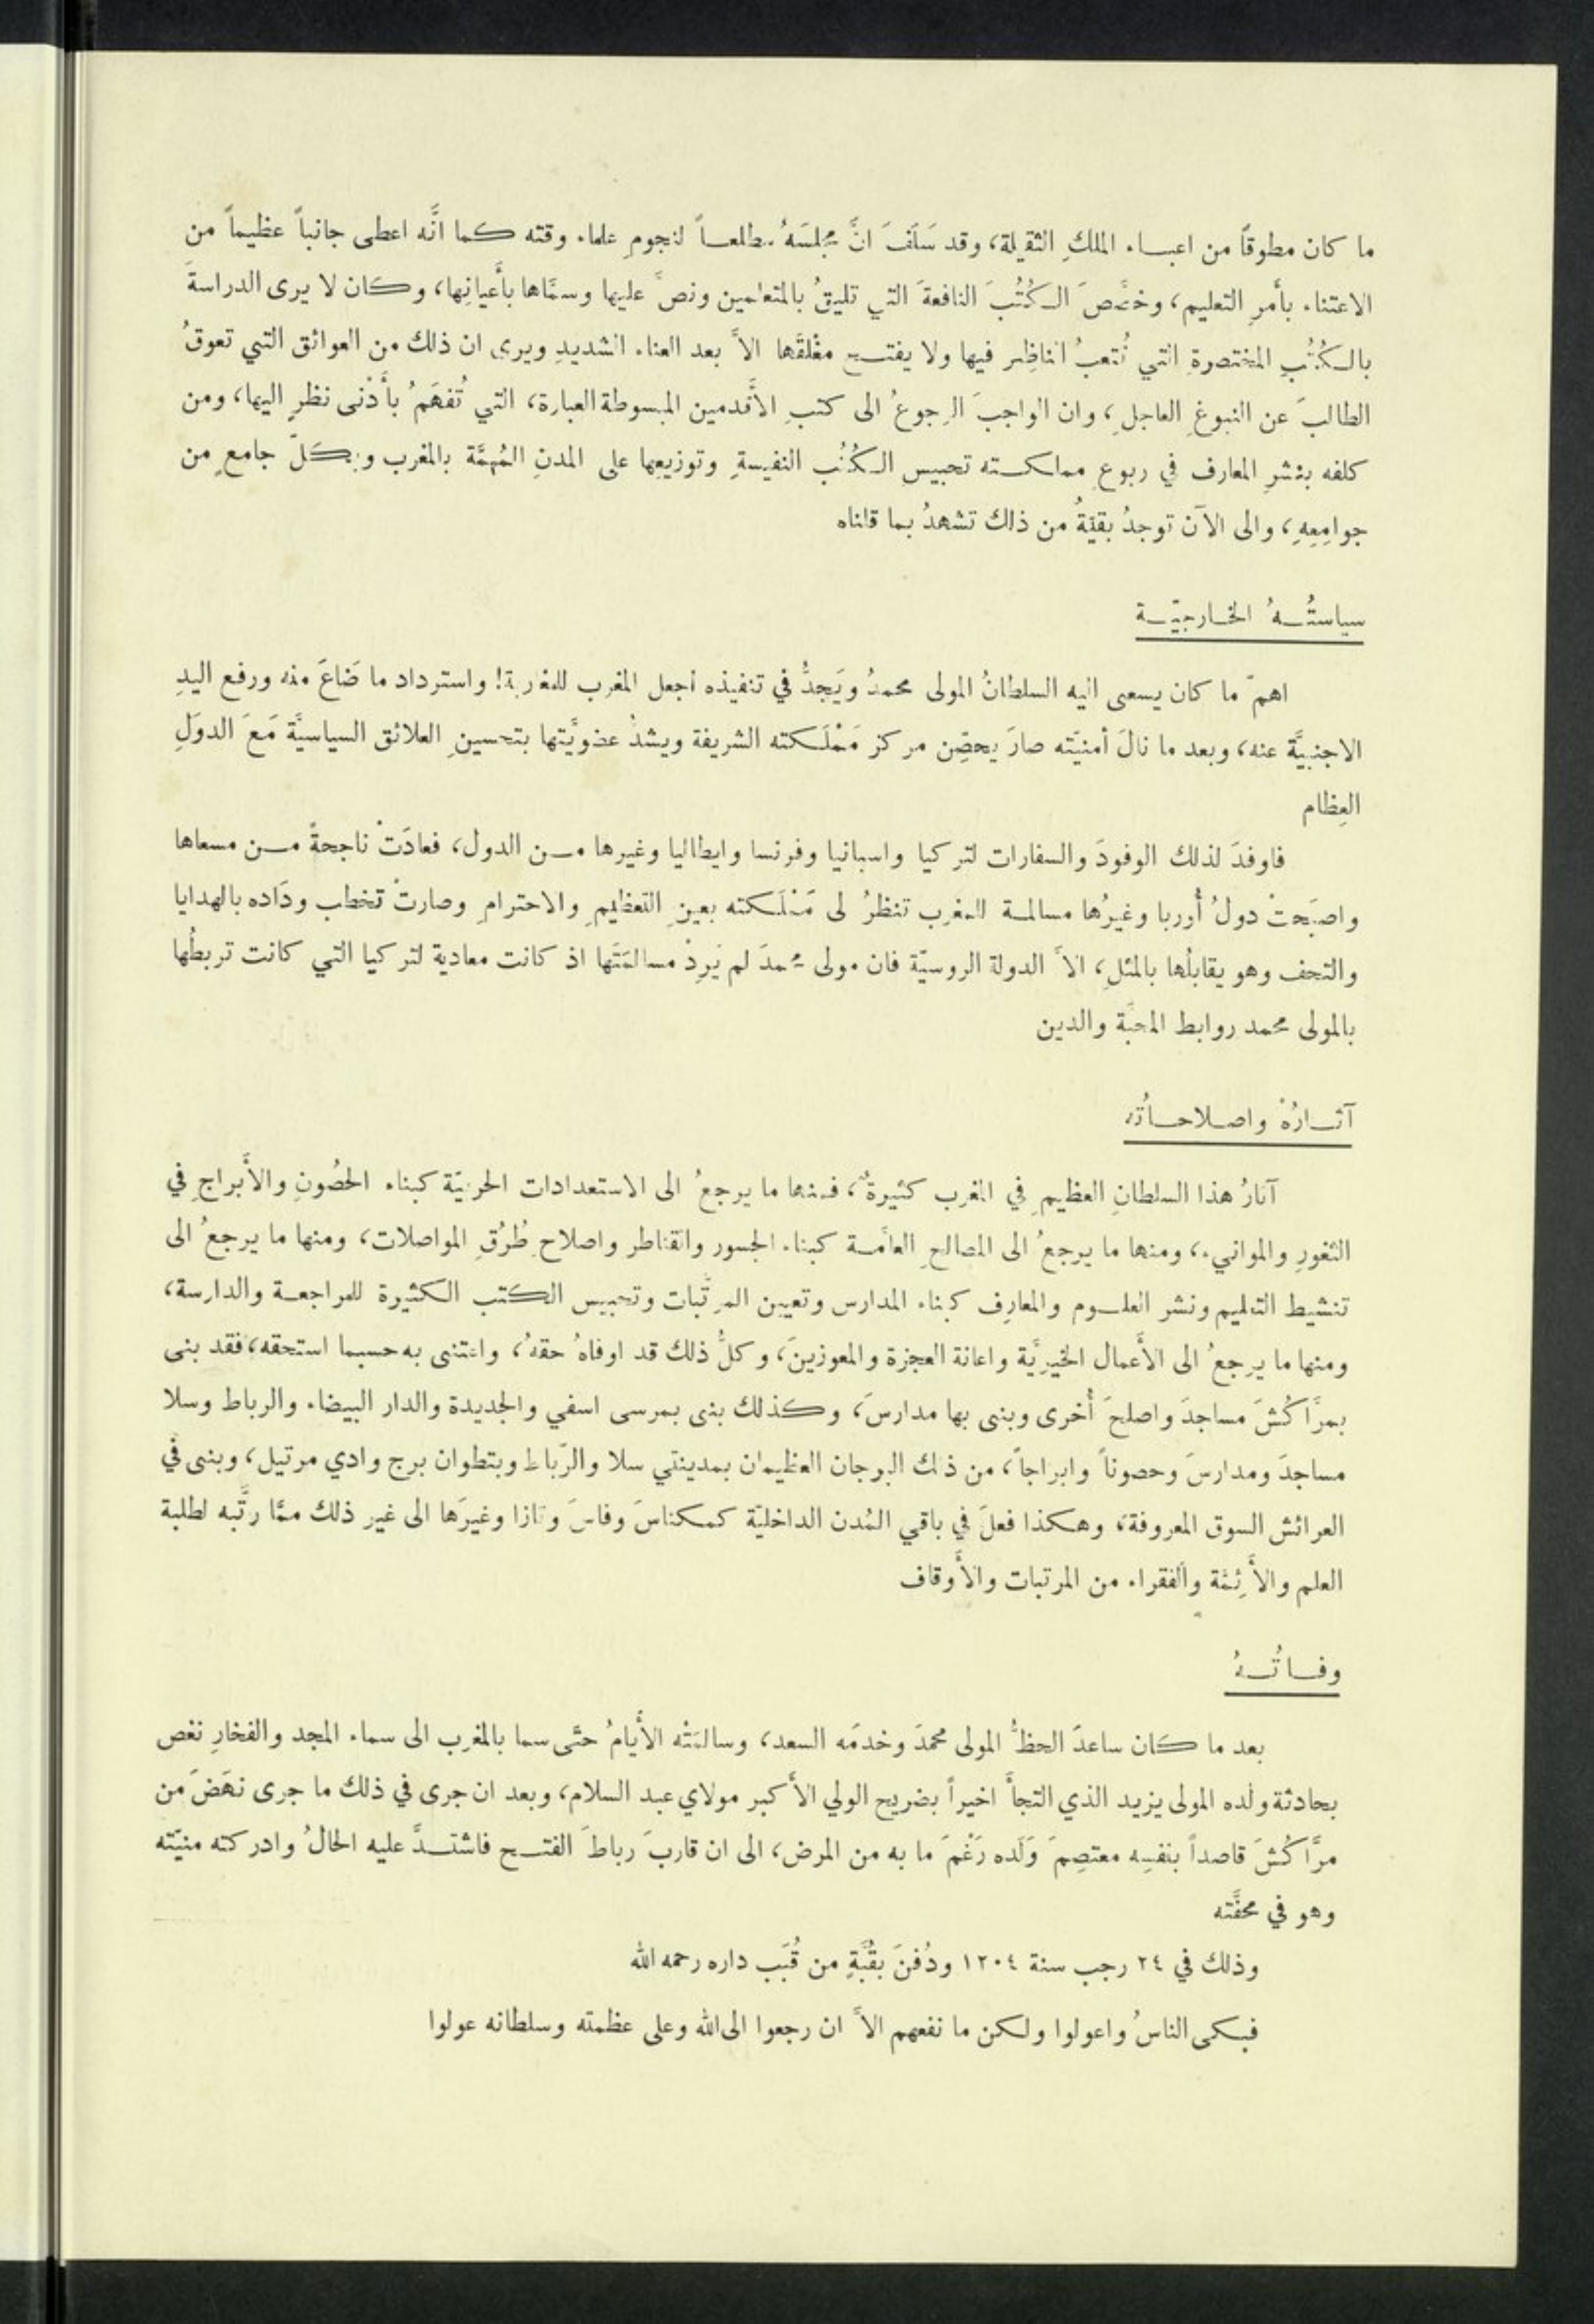 ما كان مطوقاً من اعباء الملكِ الثقيلة، وقد سَلَفَ انَّ مجلسَهُ مطلعاً لنجومِ علماء وقته كما انَّه اعطى جانباً عظيماً من
الاعتناء بأمرِ التعليم، وخصَّصَ الكُتُبَ النافعةَ التي تليقُ بالمتعلمين ونصَّ عليها وسمَّاها بأَعيانِها، وكان لا يرى الدراسةَ
بالكُتُبِ المختصرةِ التي تُتعبُ الناظِر فيها ولا يفتح مغْلقَها الاَّ بعد العناء الشديدِ ويرى ان ذلك من العوائق التي تعوقُ
الطالبَ عن النبوغِ العاجلِ، وان الواجبَ الرجوعُ الى كتبِ الأَقدمين المبسوطة العبارة، التي تُفهَمُ بأَدْنى نظرٍ اليها، ومن
كلفه بنشرِ المعارف في ربوع مملكته تحبيس الكُتُب النفيسةِ وتوزيعها على المدنِ المُهِمَّة بالمغرب وبكلّ جامعٍ من
جوامِعِهِ، والى الآن توجدُ بقيّةُ من ذلك تشهدُ بما قلناه
سياستُهُ الخارجيّة
اهمّ ما كان يسعى اليه السلطانُ المولى محمدُ ويَجدُّ في تنفيذه اجعل المغرب للمغاربة! واسترداد ما ضَاعَ منه ورفع اليدِ
الاجنبيَّة عنه، وبعد ما نالَ أمنيّته صارَ يحصِّن مركز مَمْلَكته الشريفة ويشدُّ عضويَّتها بتحسينِ العلائق السياسيَّة مَعَ الدوَلِ
العِظام
فاوفدَ لذلك الوفودَ والسفارات لتركيا واسبانيا وفرنسا وايطاليا وغيرها من الدول، فعادَتْ ناجحةً من مسعاها
واصبَحتْ دولُ أُوربا وغيرُها مسالمة للمغرب تنظرُ لى مَمْلَكته بعينِ التعظيمِ والاحترامِ وصارتْ تخطب ودَاده بالهدايا
والتحف وهو يقابلُها بالمثلِ، الاَّ الدولة الروسيّة فان مولى محمدَ لم يَرِدْ مسالمَتَها اذ كانت معادية لتركيا التي كانت تربطُها
بالمولى محمد روابط المحبَّة والدين
آثارُهُ واصلاحاتُه
آثارُ هذا السلطانِ العظيمِ في المغرب كثيرةٌ، فمنها ما يرجعُ الى الاستعدادات الحربيّة كبناء الحصُونِ والأَبراجِ في
الثغورِ والموانيء، ومنها ما يرجعُ الى المصالحِ العامَّة كبناء الجسور والقناطر واصلاحِ طُرُقِ المواصلات، ومنها ما يرجعُ الى
تنشيط التعليم ونشر العلوم والمعارِف كبناء المدارس وتعيين المرتَّبات وتحبيس الكتب الكثيرة للمراجعة والدارسة،
ومنها ما يرجعُ الى الأَعمال الخيريَّة واعانة العجزة والمعوزينَ، وكلُّ ذلك قد اوفاهُ حقهُ، واعتنى به حسبما استحقه، فقد بنى
بمرَّاكُشَ مساجدَ واصلحَ أُخرى وبنى بها مدارسَ، وكذلك بنى بمرسى اسفي والجديدة والدار البيضاء والرباط وسلا
مساجدَ ومدارسَ وحصوناً وابراجاً، من ذلك البرجان العظيمان بمدينتي سلا والرّباط وبتطوان برج وادي مرتيل، وبنى في
العرائش السوق المعروفة، وهكذا فعلَ في باقي المُدن الداخليّة كمكناسَ وفاسَ وتازا وغيرَها الى غير ذلك ممّا رتَّبه لطلبة
العلم والأَئِمَّة والفقراء من المرتبات والأَوقاف
وفاتُهُ
بعد ما كان ساعدَ الحظُّ المولى محمّدَ وخدمَه السعد، وسالمَتْه الأَيامُ حتَّى سما بالمغرب الى سماء المجد والفخارِ نغص
بحادثة ولده المولى يزيد الذي التجأَ اخيراً بضريح الولي الأَكبر مولاي عبد السلام، وبعد ان جرى في ذلك ما جرى نهَضَ من
مرَّاكُشَ قاصداً بنفسِه معتصِمَ وَلَده رَغْمَ ما به من المرض، الى ان قاربَ رباطَ الفتح فاشتدَّ عليه الحالُ وادركته منيّته
وهو في محفَّته
وذلك في ٢٤ رجب سنة ١٢٠٤ ودُفنَ بقُبَّةٍ من قُبَب داره رحمه الله
فبكى الناسُ واعولوا ولكن ما نفعهم الاَّ ان رجعوا الى الله وعلى عظمته وسلطانه عولوا